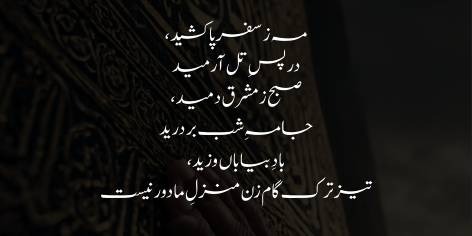 مہ ز سفر پا کشید،
در پسِ تل آرمید
صبح ز مشرق دمید،
جامہِ شب بر درید
بادِ بیاباں وزید،
تیز ترک گام زن منزلِ ما دور نیست